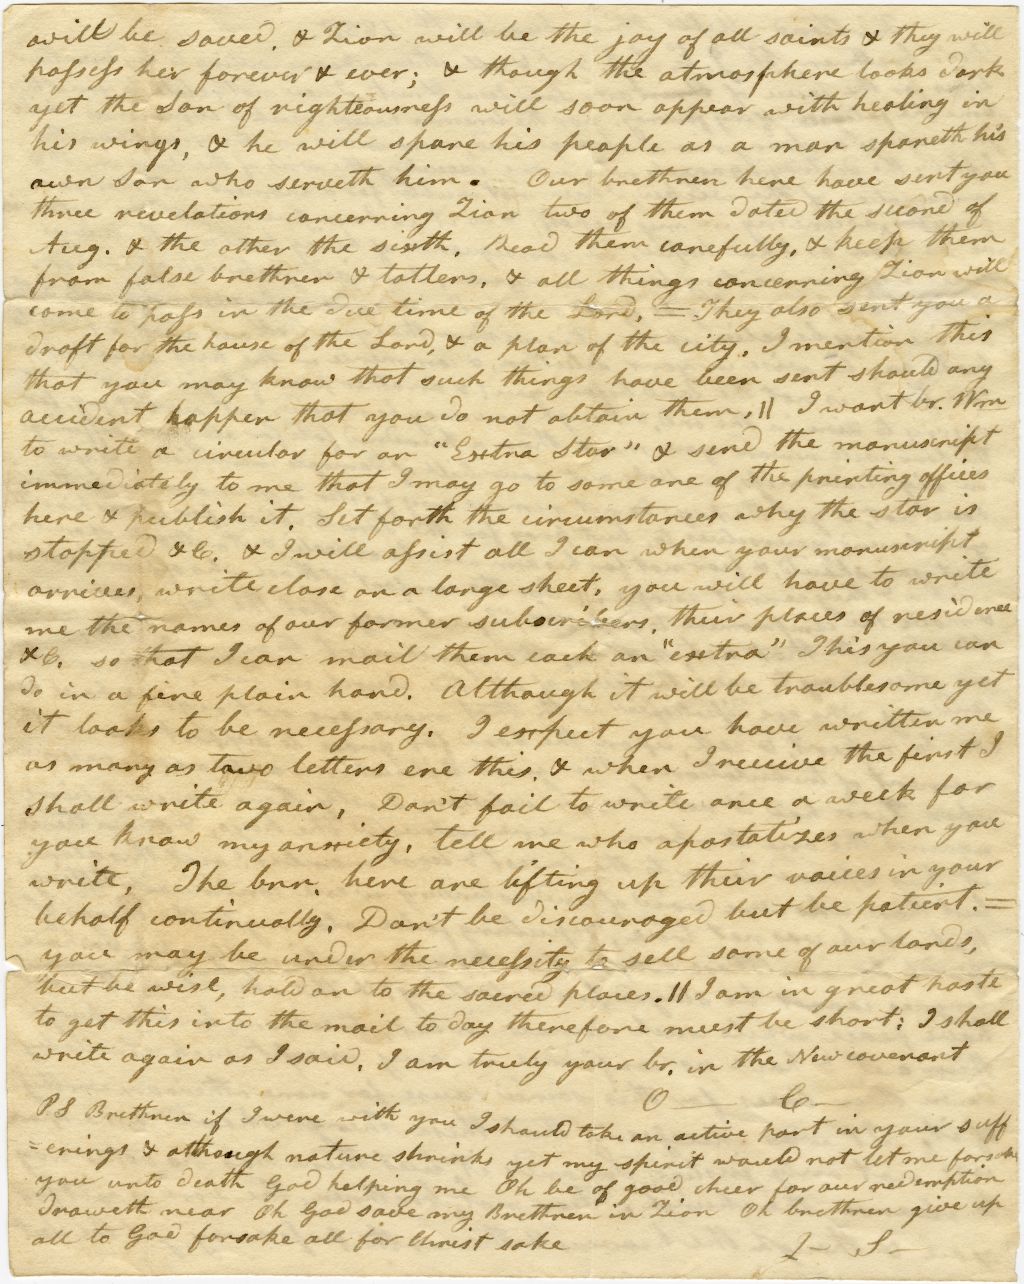 will be saved. & Zion will be the joy of all saints & they will
possess her forever & ever; & though the atmosphere looks dark
yet the Son of righteousness will soon appear with healing in
his wings, & he will spare his people as a man spareth his
own Son who serveth him. Our brethren here have sent you
three revelations concerning Zion two of them dated the second of
Aug. & the other the sixth. Read them carefully, & keep them
from false brethren & tatlers, & all things concerning Zion will
come to pass in the due time of the Lord. = They also sent you a
draft for the house of the Lord, & a plan of the city. I mention this
that you may know that such things have been sent should any
accident happen that you do not obtain them. || I want br. Wm
to write a circular for an "Extra Star" & send the manuscript
immediately to me that I may go to some one of the printing offices
here & publish it. Set forth the circumstances why the star is
stopped &C. & I will assist all I can when your manuscript
arrives, write close on a large sheet, you will have to write
me the names of our former subscribers, their places of residence
&C. so that I can mail them each an "extra" This you can
do in a fine plain hand. Although it will be troublesome yet
it looks to be necessary. I expect you have written me
as many as two letters ere this, & when I receive the first I
shall write again, Don't fail to write once a week for
you know my anxiety, tell me who apostatizes when you
write, The brn. here are lifting up their voices in your
behalf continually. Don't be discouraged but be patient. =
you may be under the necessity to sell some of our lands,
but be wise, hold on to the sacred places. || I am in great haste
to get this into the mail to day therefore must be short: I shall
write again as I said, I am truly your br. in the New covenant
O— C—
PS Brethren if I were with you I should take an active part in your suff
=erings & although nature shrinks yet my spirit would not let me forsake
you unto death God helping me Oh be of good cheer for our redemption
draweth near Oh God save my Brethren in Zion Oh brethren give up
all to God forsake all for Christ sake
J— S—